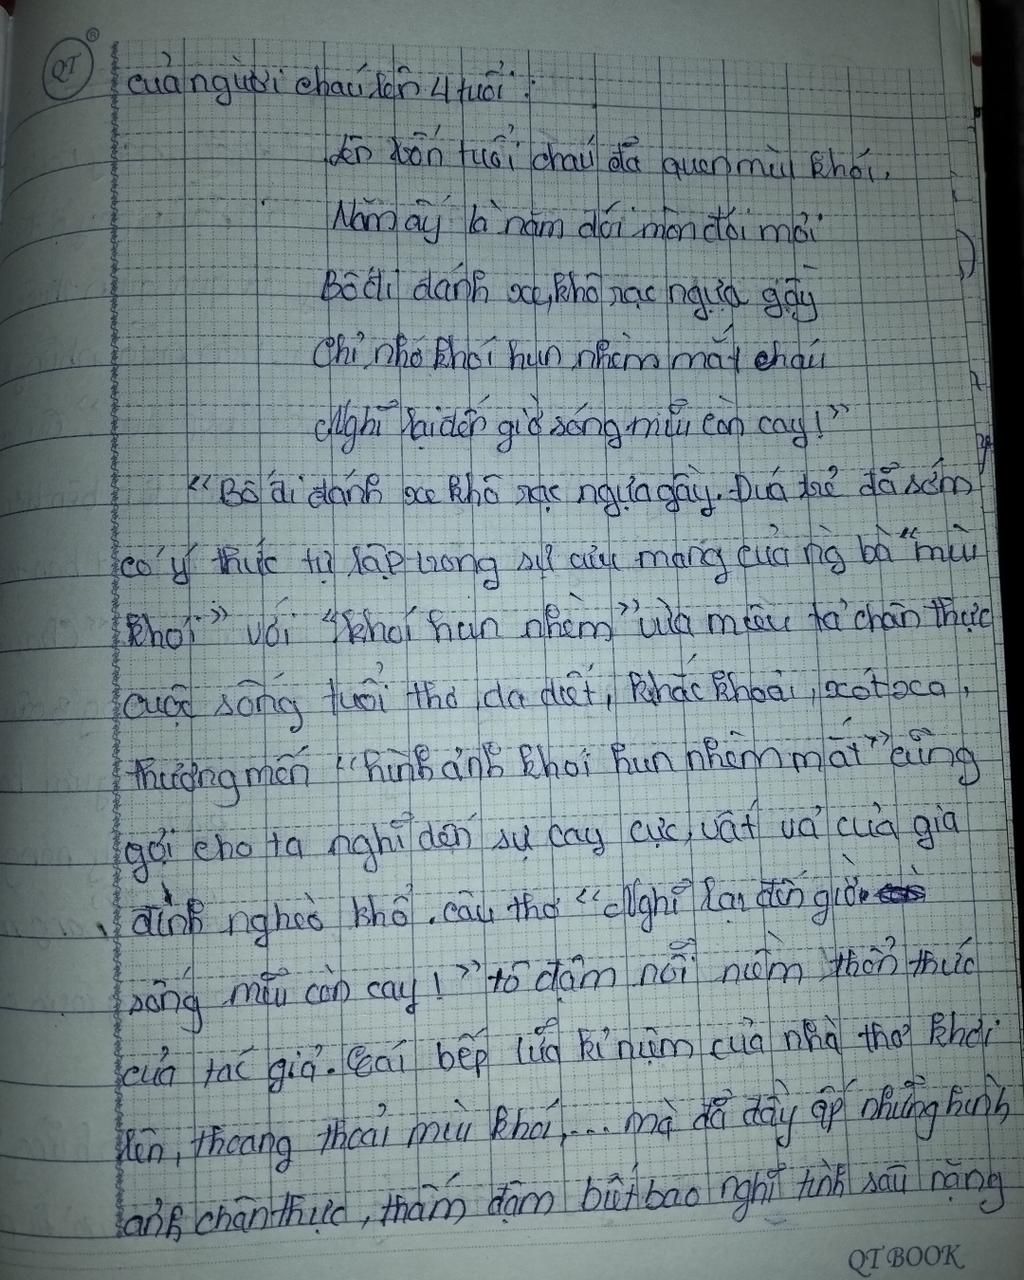 QT
của người cháu lên 4 tuổi:
Lên bốn tuổi cháu đã quen mùi khói,
Năm ấy là năm đói mòn đói mỏi
Bố đi đánh xe, khô rạc ngựa gầy
Chỉ nhớ khói hun nhèm mắt cháu
Nghĩ lại đến giờ sống mũi còn cay!"
"Bố đi đánh xe khô rạc ngựa gầy. Đứa trẻ đã sớm
có ý thức tự lập trong sự cưu mang của ng bà "mùi
khói" với "khói hun nhèm" vừa miêu tả chân thực
cuộc sống tuổi thơ, da diết, khắc khoải, xót xa,
thương mến "hình ảnh khói hun nhèm mắt" cũng
gợi cho ta nghĩ đến sự cay cực, vất vả của gia
đình nghèo khổ. câu thơ "Nghĩ lại đến giờ
sống mũi còn cay!" tô đậm nỗi niềm thổn thức
của tác giả. Cái bếp lửa kỉ niệm của nhà thơ khơi
lên, thoang thoải mùi khói,... mà đã đầy ắp những hình
ảnh chân thực, thấm đậm biết bao nghĩ tình sâu nặng
QT BOOK